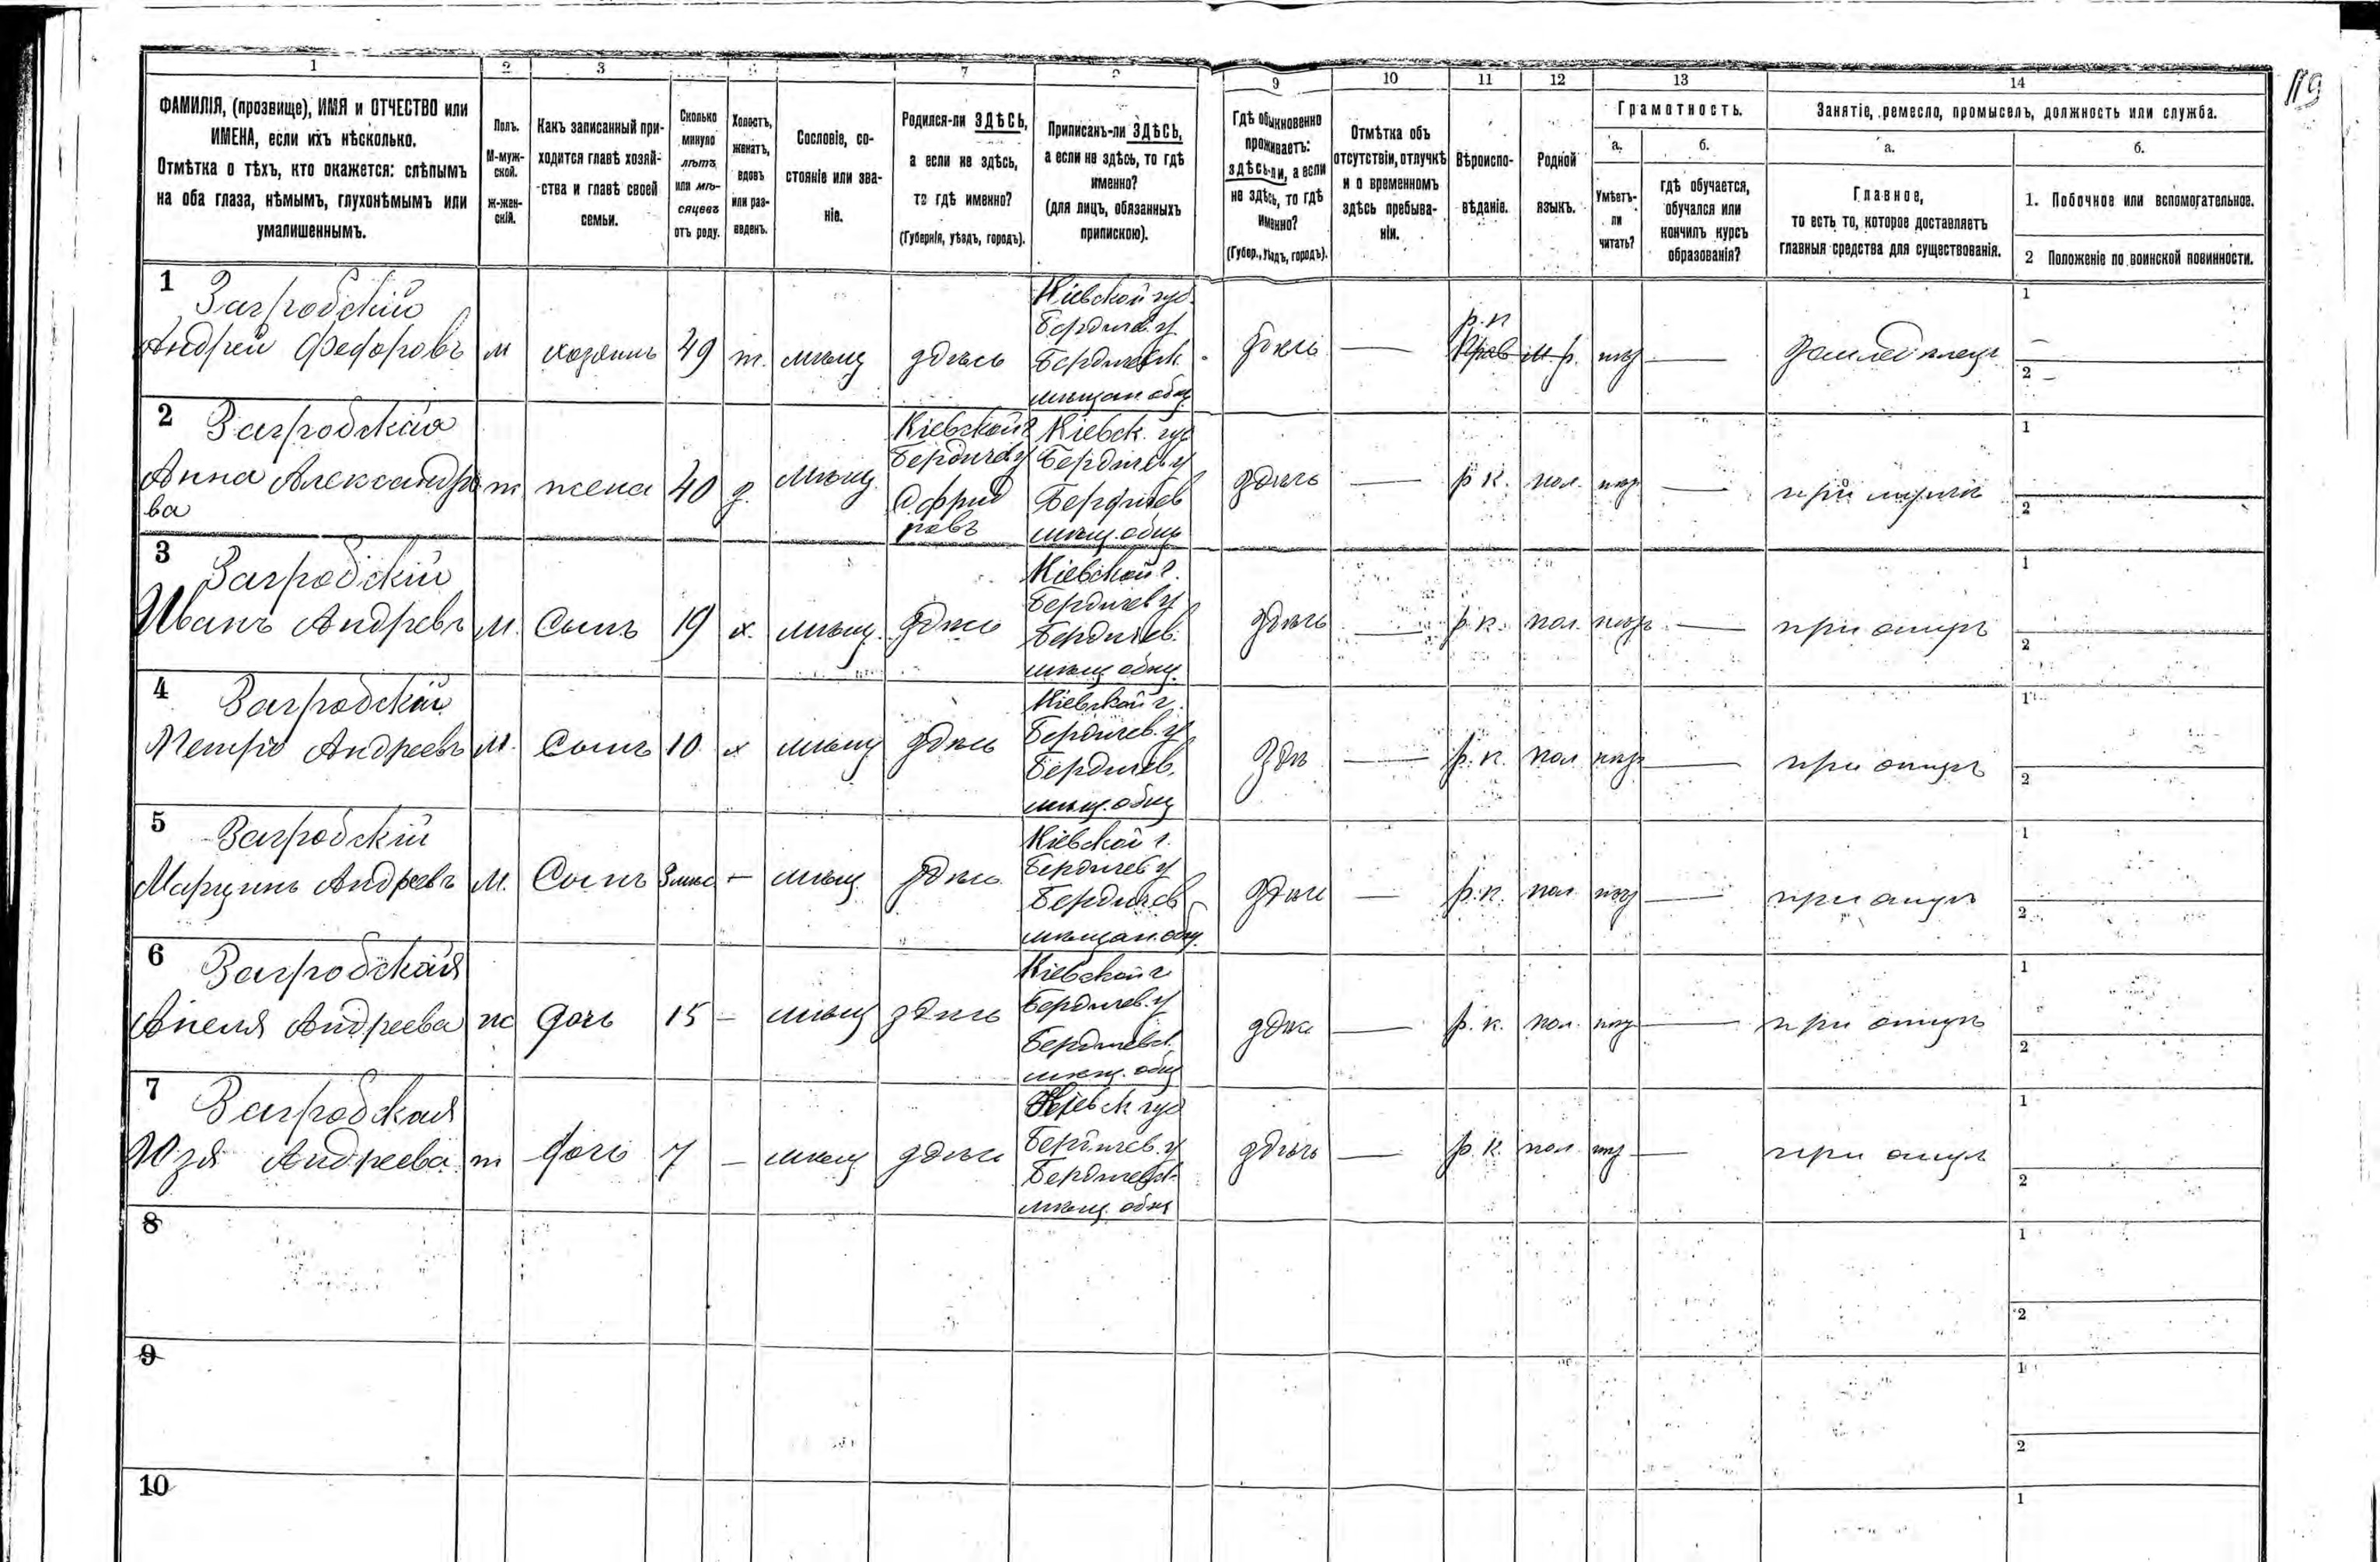 119
1 2 3 7 9 10 11 12 13 14
ФАМИЛІЯ, (прозвище), ИМЯ и ОТЧЕСТВО или
ИМЕНА, если ихъ нѣсколько.
Отмѣтка о тѣхъ, кто окажется: слѣпымъ
на оба глаза, нѣмымъ, глухонѣмымъ или
умалишеннымъ.
Полъ.
М-муж-
ской.
ж-жен-
скій.
Какъ записанный при-
ходится главѣ хозяй-
ства и главѣ своей
семьи.
Сколько
минуло
лѣтъ
или мѣ-
сяцевъ
отъ роду.
Холостъ,
женатъ,
вдовъ
или раз-
веденъ.
Сословіе, со-
стояніе или зва-
ніе.
Родился-ли ЗДѢСЬ,
а если не здѣсь,
то гдѣ именно?
(Губернія, уѣздъ, городъ).
Приписанъ-ли ЗДѢСЬ,
а если не здѣсь, то гдѣ
именно?
(для лицъ, обязанныхъ
припискою).
Гдѣ обыкновенно
проживаетъ:
здѣсь-ли, а если
не здѣсь, то гдѣ
именно?
(Губер., уѣздъ, городъ).
Отмѣтка объ
отсутствіи, отлучкѣ
и о временномъ
здѣсь пребыва-
ніи.
Вѣроиспо-
вѣданіе.
Родной
языкъ.
Грамотность.
а.
Умѣетъ-
ли
читать?
б.
гдѣ обучается,
обучался или
кончилъ курсъ
образованія?
Занятіе, ремесло, промыселъ, должность или служба.
а.
Главное,
то есть то, которое доставляетъ
главныя средства для существованія.
б.
1. Побочное или вспомогательное.
2 Положеніе по воинской повинности.
1 Загродскій
Андрей Федоровъ м хозяинъ 49 ж. мѣщ здѣсь
Кіевской губ.
Бердичев. у
Бердичевск.
мѣщан. общ
здѣсь — р. к
Прав м. р. нѣт —
1 —
2 —
2 Загродская
Анна Александро
ва
ж жена 40 з. мѣщ.
Кіевской г
Бердичев у
Кіевск. губ
Бердичев у
Бердичев
мѣщ. общ
здѣсь — р. к. пол. нѣт —
1
2
3 Загродскій
Иванъ Андревъ м. Сынъ 19 х. мѣщ. здѣсь
Кіевской г.
Бердичев у
Бердичев.
мѣщ общ.
здѣсь — р. к. пол. нѣт — при отцѣ
1
2
4 Загродскій
Петро Андреевъ м. Сынъ 10 х мѣщ здѣсь
Кіевской г.
Бердичев. у
Бердичев.
мѣщ. общ
здѣ — р. к. пол нѣт — при отцѣ
1
2
5 Загродскій
Марцинъ Андреевъ м. Сынъ 3 мѣс — мѣщ. здѣсь
Кіевской г.
Бердичев у
Бердичев
мѣщан. общ.
здѣсь — р. к. пол нѣт — при отцѣ
1
2
6 Загродская
Анеля Андреева ж дочь 15 — мѣщ здѣсь
Кіевской г
Бердичев. у
Бердичевск.
мѣщ. общ
здѣсь — р. к. пол. нѣт — при отцѣ
1
2
7 Загродская
Юзя Андреева ж дочь 7 — мѣщ здѣсь
Кіевск губ
Бердичев. у
Бердичевск.
мѣщ. общ
здѣсь — р. к. пол. нѣт — при отцѣ
1
2
8
1
2
9
1
2
10
1